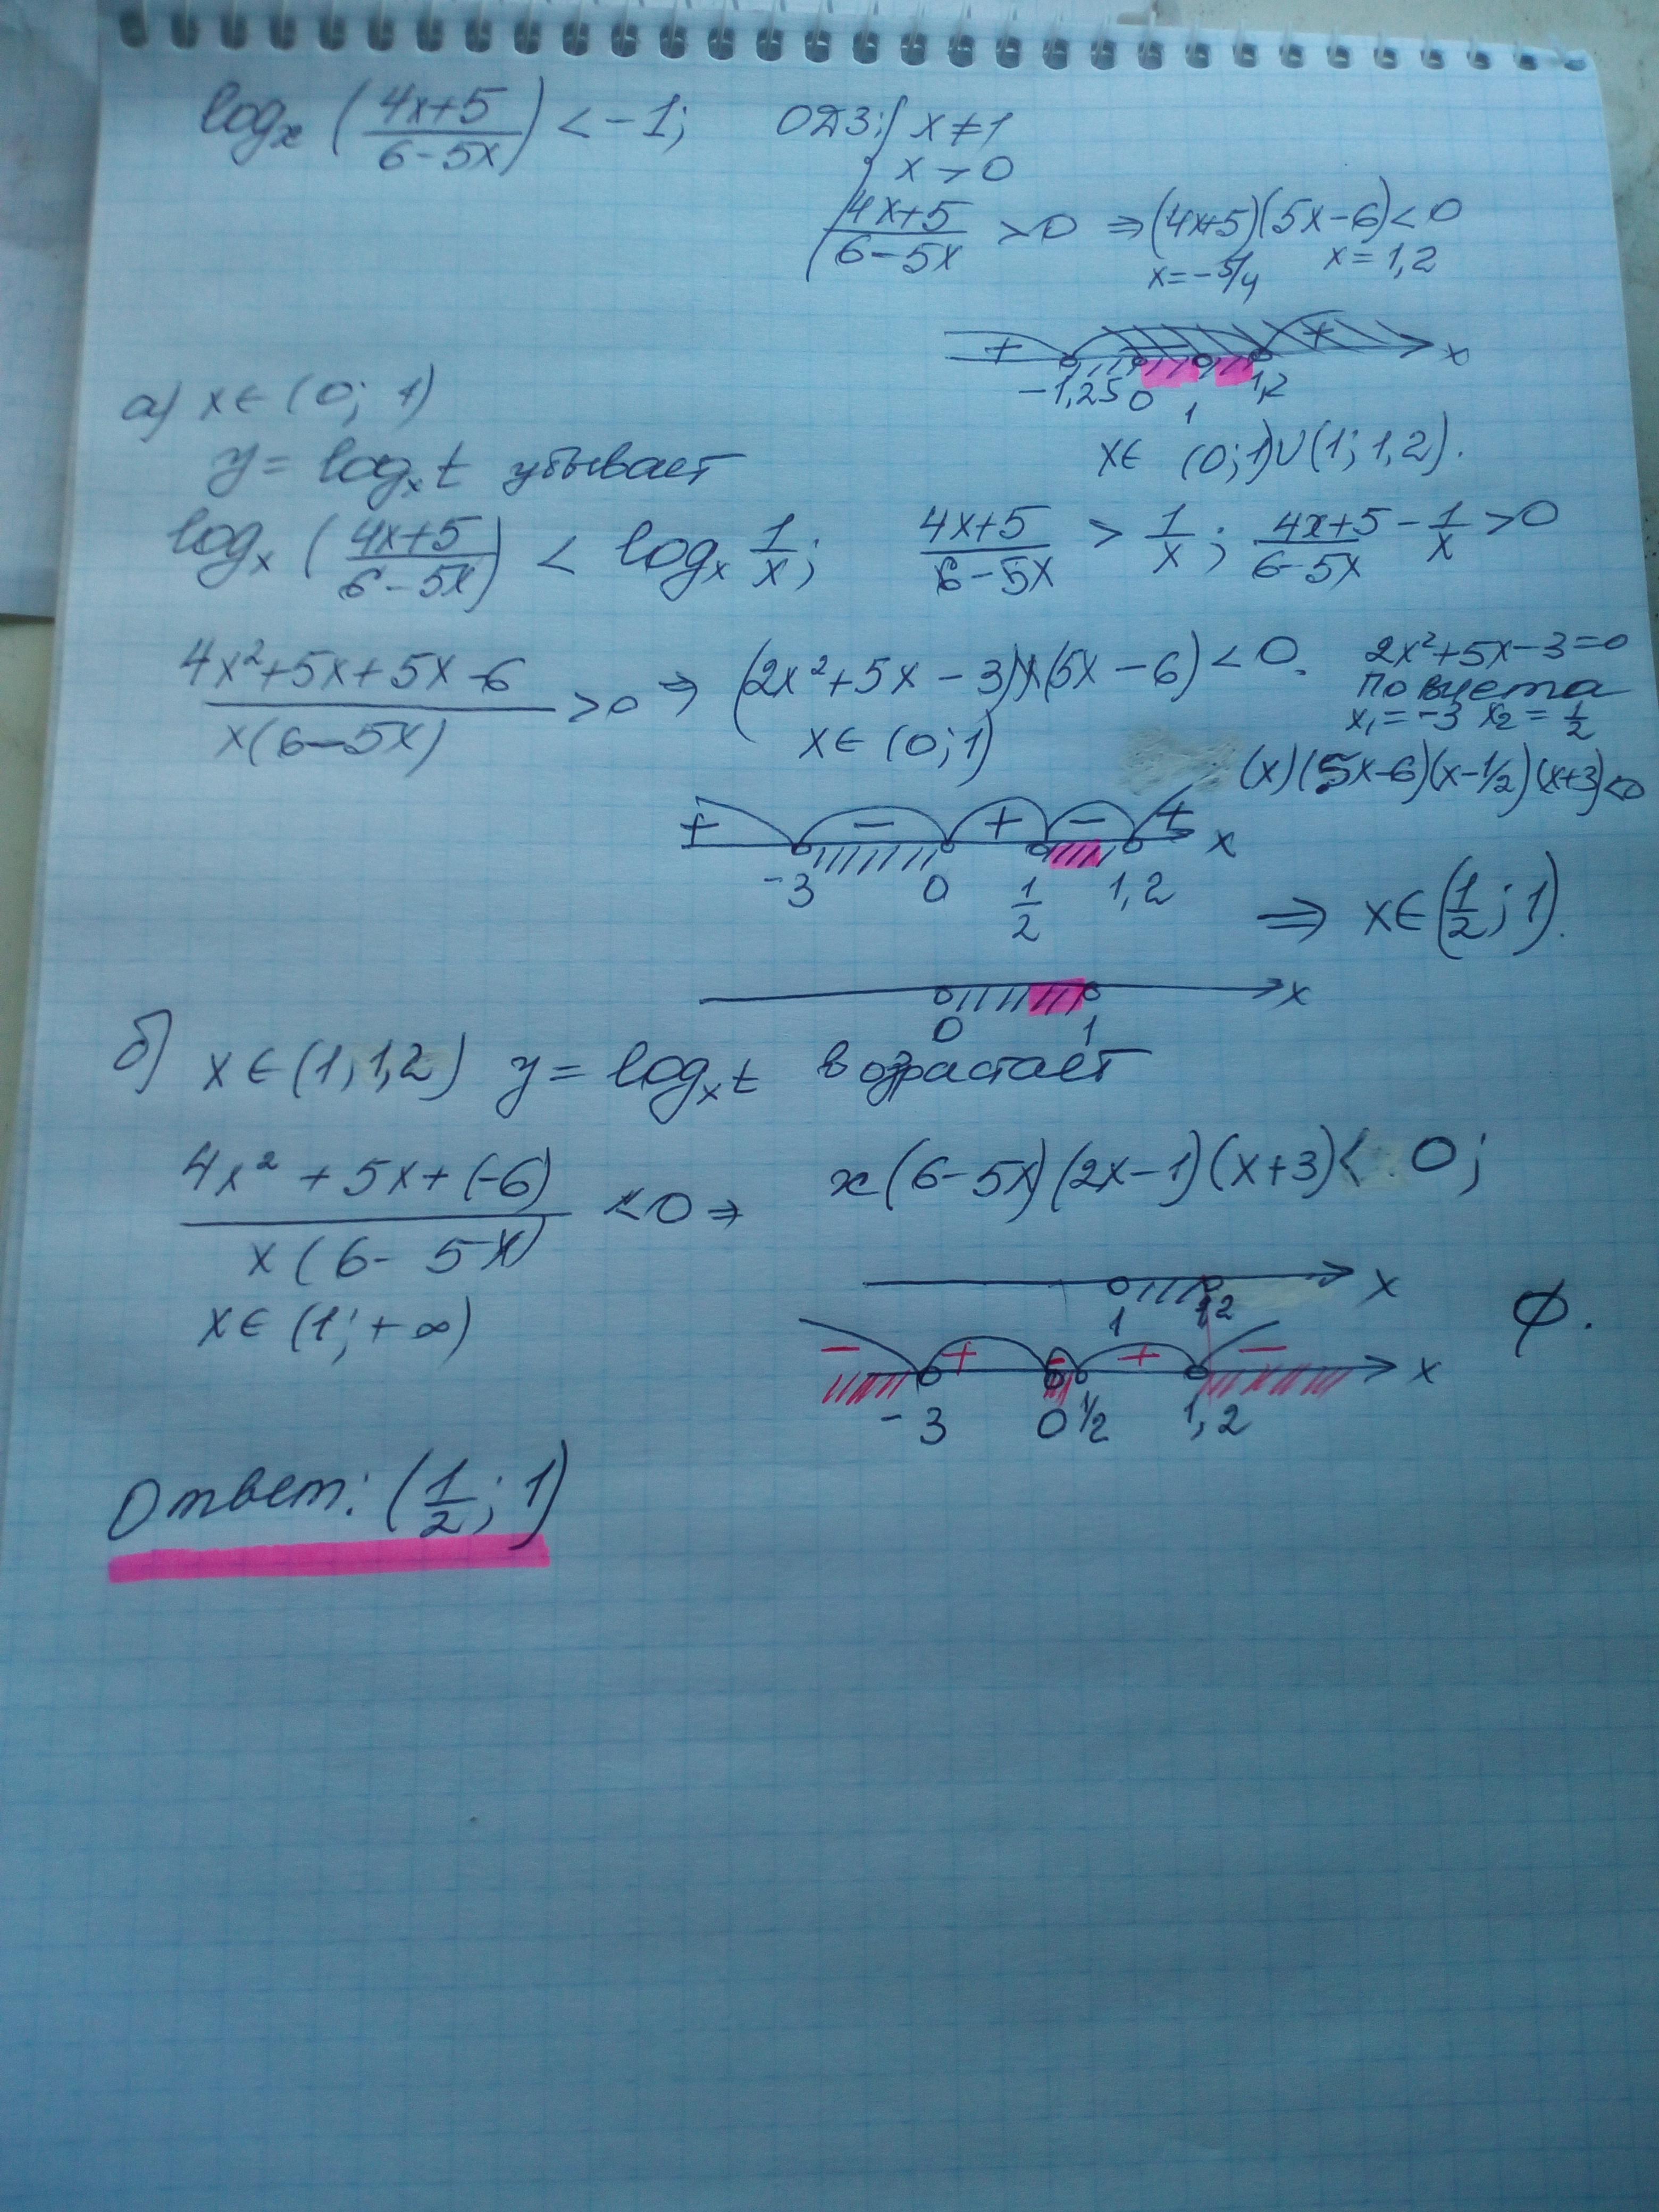 log_x ( (4x+5)/(6-5x) ) < -1;   ОДЗ: { x ≠ 1
x > 0
(4x+5)/(6-5x) > 0 ⇒ (4x+5)(5x-6) < 0
x = -5/4   x = 1,2
+ - + x
-1,25 0 1 1,2
x ∈ (0; 1) ∪ (1; 1,2).
а) x ∈ (0; 1)
y = log_x t убывает
log_x ( (4x+5)/(6-5x) ) < log_x 1/x;   (4x+5)/(6-5x) > 1/x;   (4x+5)/(6-5x) - 1/x > 0
(4x²+5x+5x-6)/(x(6-5x)) > 0 ⇒ (2x²+5x-3)x(5x-6) < 0.
x ∈ (0; 1)
2x²+5x-3=0
По Виета
x₁ = -3 x₂ = 1/2
(x)(5x-6)(x-1/2)(x+3)<0
+ - + - + x
-3 0 1/2 1,2
⇒ x ∈ (1/2; 1).
x
0 1
б) x ∈ (1; 1,2) y = log_x t возрастает
(4x² + 5x + (-6))/(x(6-5x)) < 0 ⇒ x(6-5x)(2x-1)(x+3) < 0;
x ∈ (1; +∞)
x
1 1,2
∅.
- + - + - x
-3 0 1/2 1,2
Ответ: (1/2; 1)